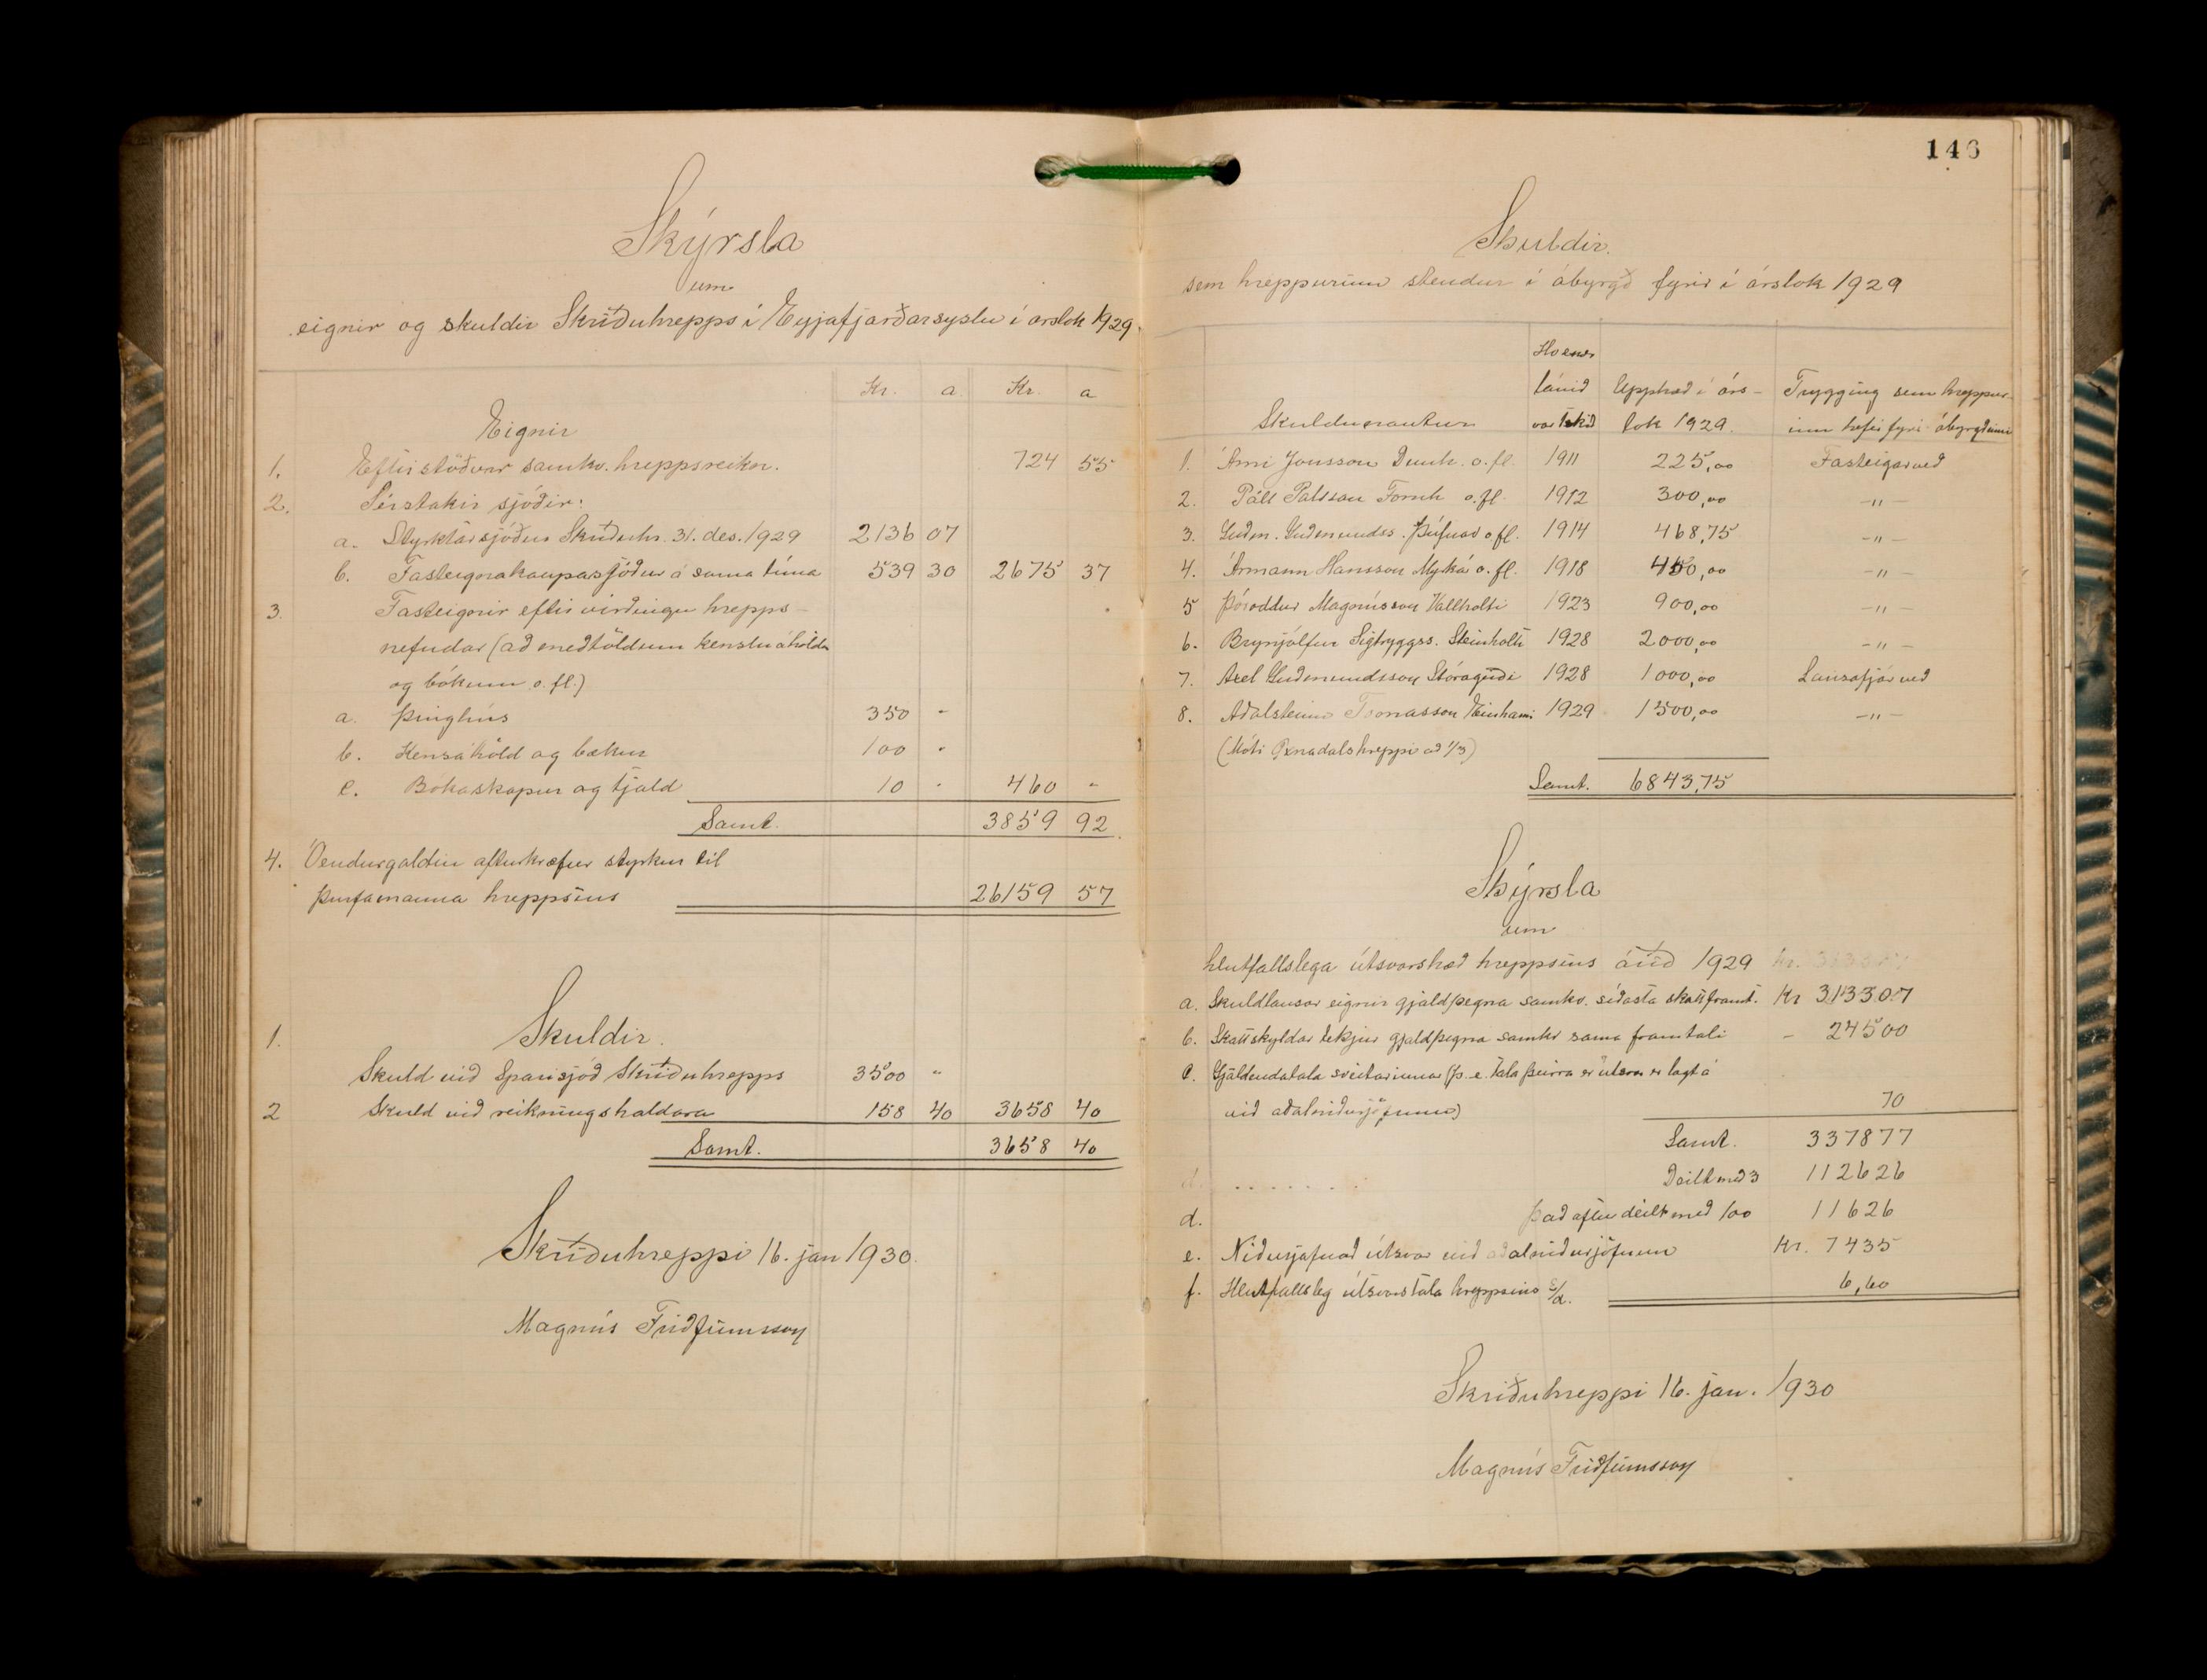 Skýrsla
um
eignir og skuldir Skriðuhrepps í Eyjafjarðarsyslu í arslok 1929.
Kr. a Kr. a
Eignir
1. Eftirstöðvar samkv. hreppsreikn. 724 55
2. Sérstakir sjóðir:
a. Styrktarsjóður Skriðuhr. 31. des. 1929 2136 07
b. Fasteignakaupasjóður á sama tíma 539 30 2675 37
3. Fasteignir eftir virðingu hrepps-
nefndar (að meðtöldum kensluáhöldum
og bókum o. fl.)
a. Þinghús 350 -
b. Kensluáhöld og bækur 100 -
c. Bókaskapur og tjald 10 - 460 -
Samt. 3859 92
4. Óendurgoldin afturkræfur styrkur til
þurfamanna hreppsins 26159 57
1. Skuldir.
Skuld við Sparisjóð Skriðuhrepps 3500 "
2 Skuld við reikningshaldara 158 40 3658 40
Samt. 3658 40
Skriðuhreppi 16. jan 1930.
Magnús Friðfinnsson
146
Skuldir.
sem hreppurinn stendur í ábyrgð fyrir í árslok 1929
Skuldunautur
Hvenær
lánið
var tekið
Upphæð í árs-
lok 1929.
Trygging sem hreppur-
inn hefir fyrir ábyrgðinni
1. Árni Jonsson Dunh. o. fl. 1911 225,00 Fasteignaveð
2. Páll Palsson Fornh o. fl. 1912 300,00 -"-
3. Guðm. Guðmundss. Þúfnav. o fl. 1914 468,75 -"-
4. Ármann Hansson Myrká o. fl. 1918 450,00 -"-
5 Þóroddur Magnússon Vallholti 1923 900,00 -"-
6. Brynjólfur Sigtryggss. Steinholti 1928 2000,00 -"-
7. Axel Guðmundsson Stóragerði 1928 1000,00 Lausafjárveð
8. Aðalsteinn Tomasson Einhami 1929 1500,00 -"-
(Móti Öxnadalshreppi að 1/3)
Samt. 6843,75
Skýrsla
um
hlutfallslega útsvarshæð hreppsins árið 1929
a. Skuldlausar eignir gjaldþegna samkv. síðasta skattframt. Kr 313307
b. Skattskyldar tekjur gjaldþegna samkv sama framtali - 24500
c. Gjaldendatala sveitarinnar (þ. e. tala þeirra er útsvar er lagt á
við aðalniðurjöfnun) 70
Samt. 337877
Deilt með 3 112626
d. Það aftur deilt með 100 11626
e. Niðurjafnað útsvar við aðalniðurjöfnun Kr. 7435
f. Hlutfallsleg útsvarstala hreppsins e/d. 6,60
Skriðuhreppi 16. jan. 1930
Magnús Friðfinnsson